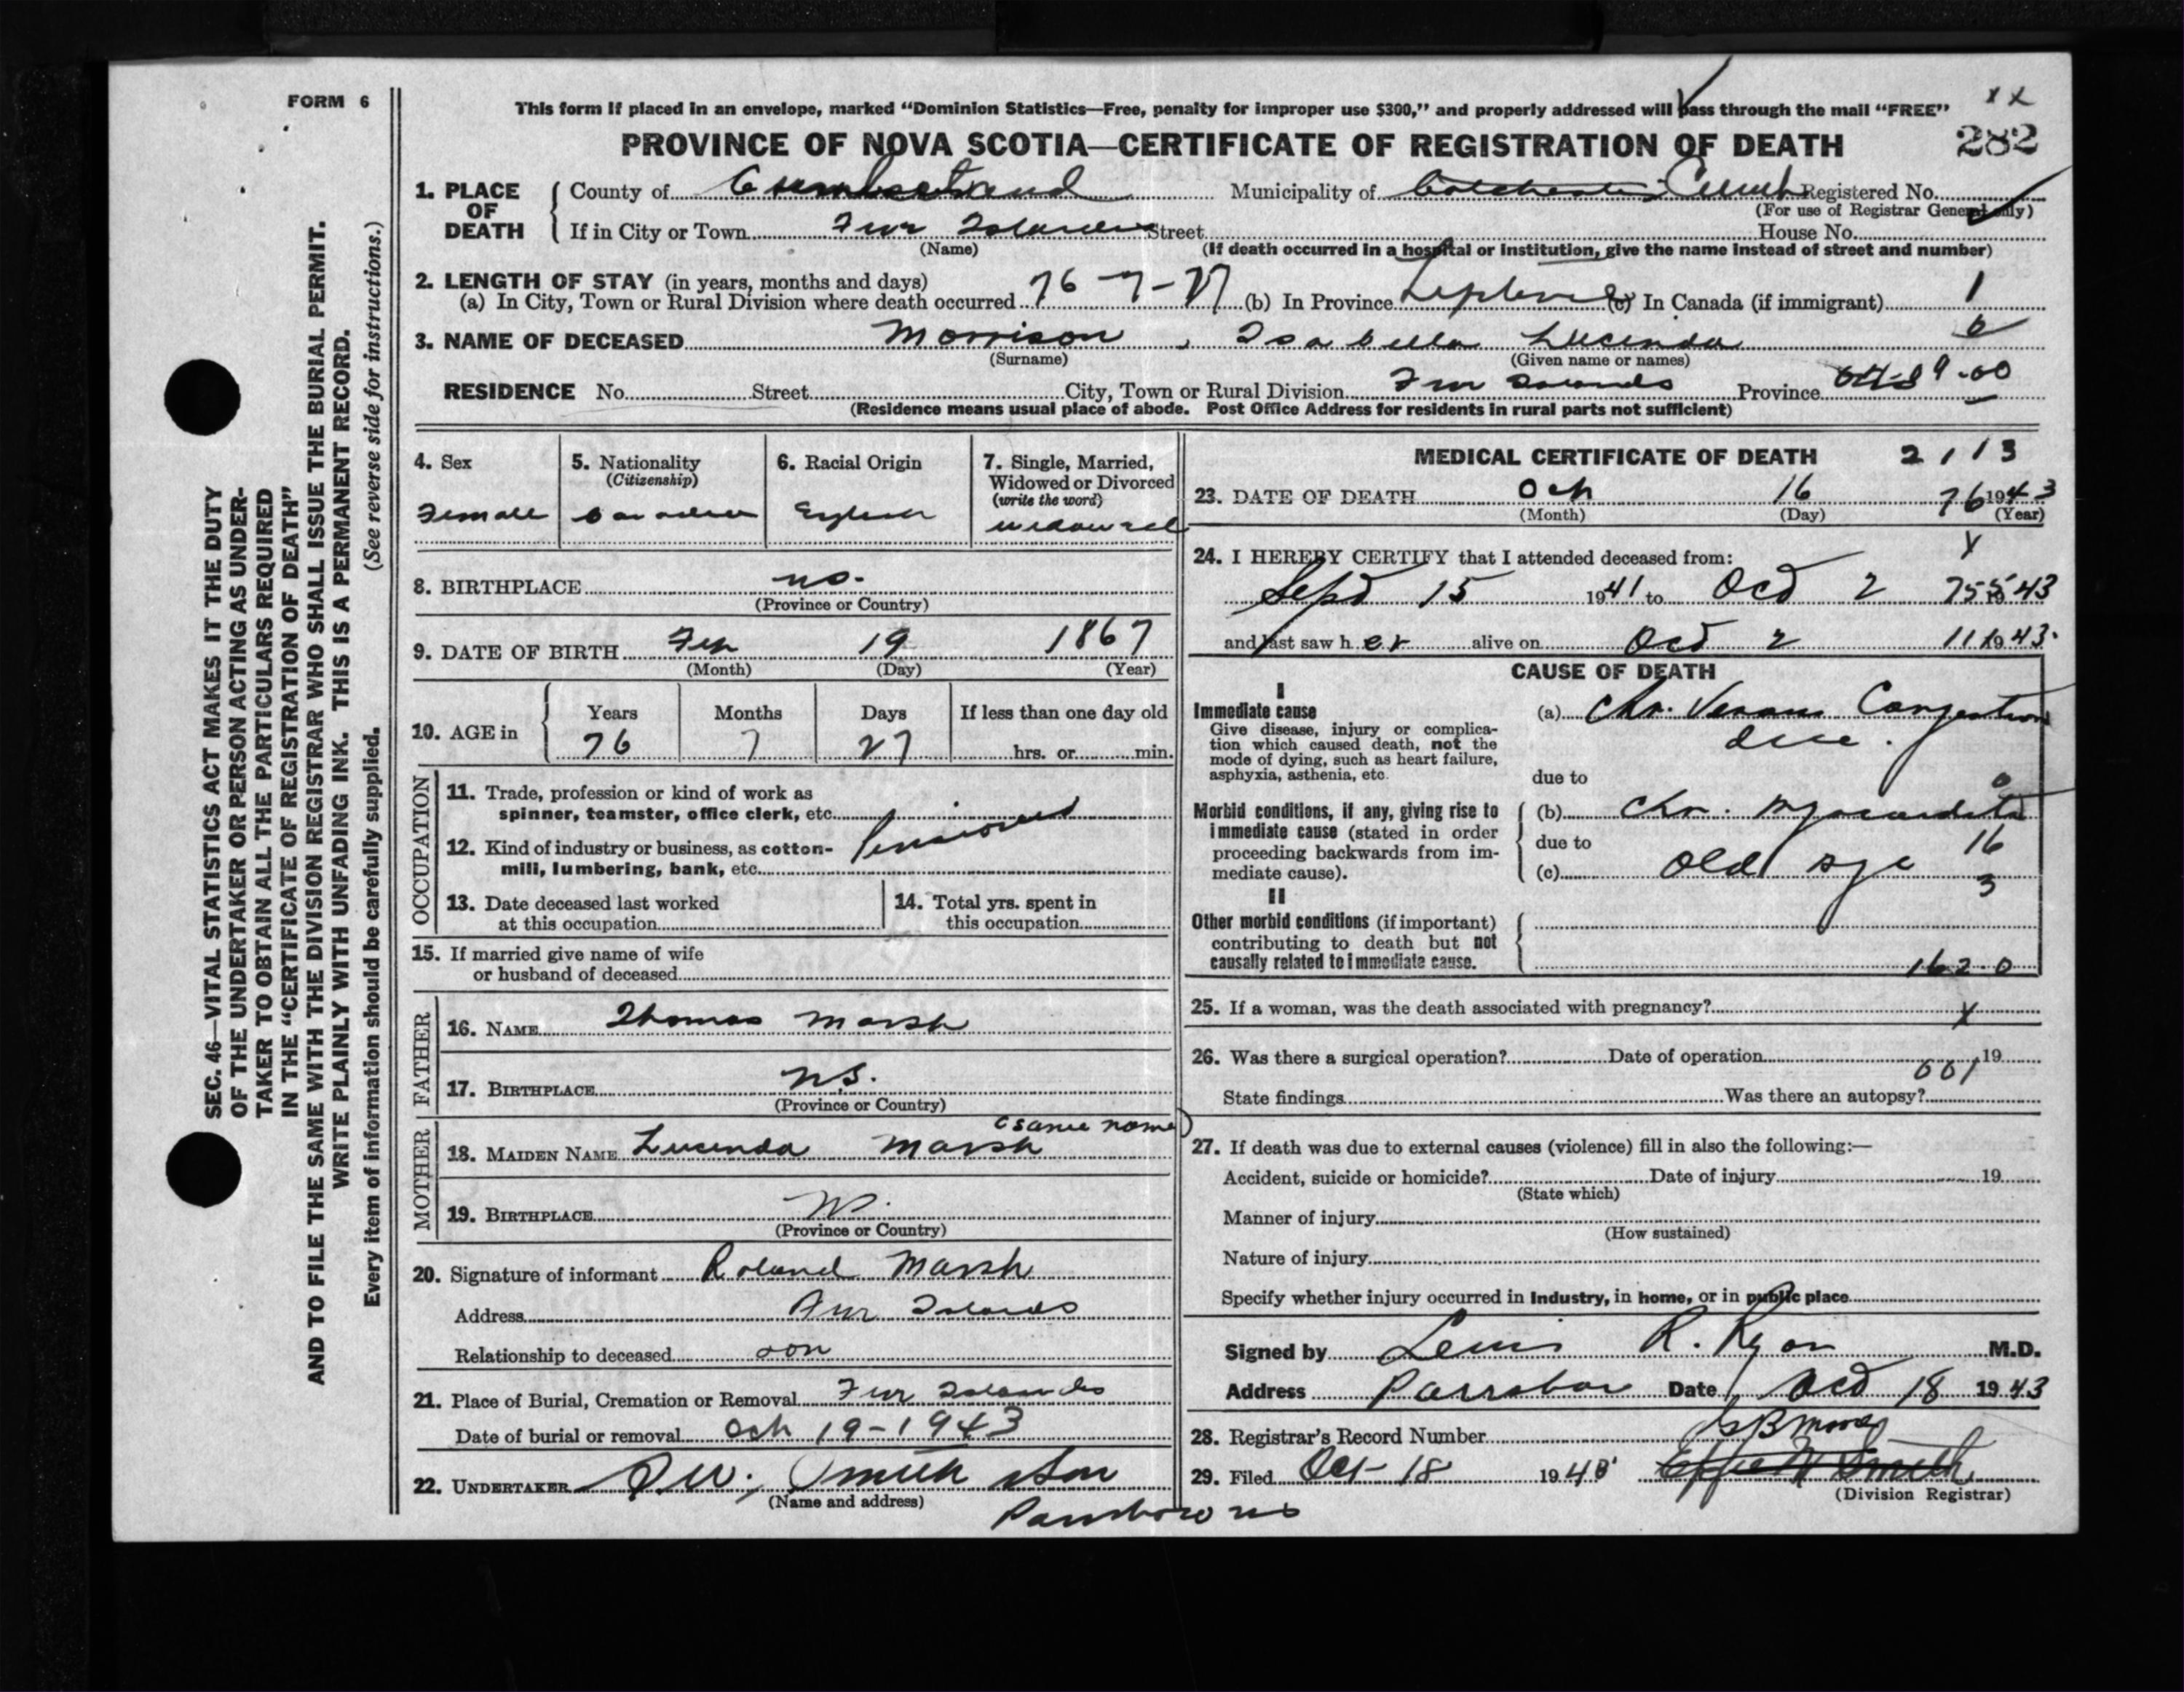 FORM 6
This form if placed in an envelope, marked “Dominion Statistics—Free, penalty for improper use $300,” and properly addressed will pass through the mail “FREE”
x x
PROVINCE OF NOVA SCOTIA—CERTIFICATE OF REGISTRATION OF DEATH 282
1. PLACE OF DEATH { County of Cumberland Municipality of Colchester Cumb Registered No.
(For use of Registrar General only)
If in City or Town Five Islands Street House No.
(Name) (If death occurred in a hospital or institution, give the name instead of street and number)
2. LENGTH OF STAY (in years, months and days)
(a) In City, Town or Rural Division where death occurred 76-7-27 (b) In Province Lifetime (c) In Canada (if immigrant) 1
3. NAME OF DECEASED Morrison, Isabella Lucinda 6
(Surname) (Given name or names)
RESIDENCE No. Street City, Town or Rural Division Five Islands Province 9-00
(Residence means usual place of abode. Post Office Address for residents in rural parts not sufficient)
4. Sex
Female
5. Nationality
(Citizenship)
Canadian
6. Racial Origin
English
7. Single, Married,
Widowed or Divorced
(write the word)
widowed
8. BIRTHPLACE ns.
(Province or Country)
9. DATE OF BIRTH Feb 19 1867
(Month) (Day) (Year)
10. AGE in { Years Months Days If less than one day old
76 7 27 hrs. or min.
OCCUPATION
11. Trade, profession or kind of work as
spinner, teamster, office clerk, etc.
Pensioned
12. Kind of industry or business, as cotton-
mill, lumbering, bank, etc.
13. Date deceased last worked
at this occupation
14. Total yrs. spent in
this occupation
15. If married give name of wife
or husband of deceased
FATHER
16. NAME Thomas Marsh
17. BIRTHPLACE N.S.
(Province or Country)
MOTHER
(same name)
18. MAIDEN NAME Lucinda Marsh
19. BIRTHPLACE
(Province or Country)
20. Signature of informant Roland Marsh
Address Five Islands
Relationship to deceased son
21. Place of Burial, Cremation or Removal Five Islands
Date of burial or removal Oct 19-1943
22. UNDERTAKER D W. Smith & Son
(Name and address)
Parrsboro ns
MEDICAL CERTIFICATE OF DEATH 2113
23. DATE OF DEATH Oct 16 76 1943
(Month) (Day) (Year)
24. I HEREBY CERTIFY that I attended deceased from: X
Sept 15 1941 to Oct 2 1943
and last saw her alive on Oct 2 1943.
CAUSE OF DEATH
I
Immediate cause
Give disease, injury or complica-
tion which caused death, not the
mode of dying, such as heart failure,
asphyxia, asthenia, etc.
(a) Chr. Venous Congestion
due
due to
Morbid conditions, if any, giving rise to
immediate cause (stated in order
proceeding backwards from im-
mediate cause).
(b) Chr. Myocarditis
due to 16
(c) Old Age
3
II
Other morbid conditions (if important)
contributing to death but not
causally related to immediate cause.
162.0
25. If a woman, was the death associated with pregnancy? X
26. Was there a surgical operation? Date of operation 19
001
State findings Was there an autopsy?
27. If death was due to external causes (violence) fill in also the following:—
Accident, suicide or homicide? Date of injury 19
(State which)
Manner of injury
(How sustained)
Nature of injury
Specify whether injury occurred in industry, in home, or in public place
Signed by Lewis R. Ryan M.D.
Address Parrsboro Date Oct 18 1943
28. Registrar's Record Number
29. Filed Oct 18 194 Effie Smith
(Division Registrar)
SEC. 46—VITAL STATISTICS ACT MAKES IT THE DUTY
OF THE UNDERTAKER OR PERSON ACTING AS UNDER-
TAKER TO OBTAIN ALL THE PARTICULARS REQUIRED
IN THE “CERTIFICATE OF REGISTRATION OF DEATH”
AND TO FILE THE SAME WITH THE DIVISION REGISTRAR WHO SHALL ISSUE THE BURIAL PERMIT.
WRITE PLAINLY WITH UNFADING INK. THIS IS A PERMANENT RECORD.
Every item of information should be carefully supplied. (See reverse side for instructions.)